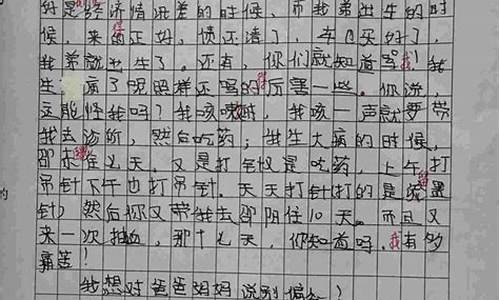 好是经济情况差的时候，而我弟出生的时
候，来的正好，债还清了，车又买好了，
我弟就出生了。还有，你们就知道骂我！我
生病了呢照样还骂的厉害一些。你说，
这能怪我吗？我咳嗽时，我咳一声就要带
我去诊所，然后吃药；我生大病的时候，
住七天，又是打针又是吃药，上午打
吊针下午也打吊针。天天打针打的是留置
针）然后你又带我去邵阳住10天。而且又
来一次抽血，那十七天，你知道吗，我有多
痛苦！
我想对爸爸妈妈说别偏心！
的